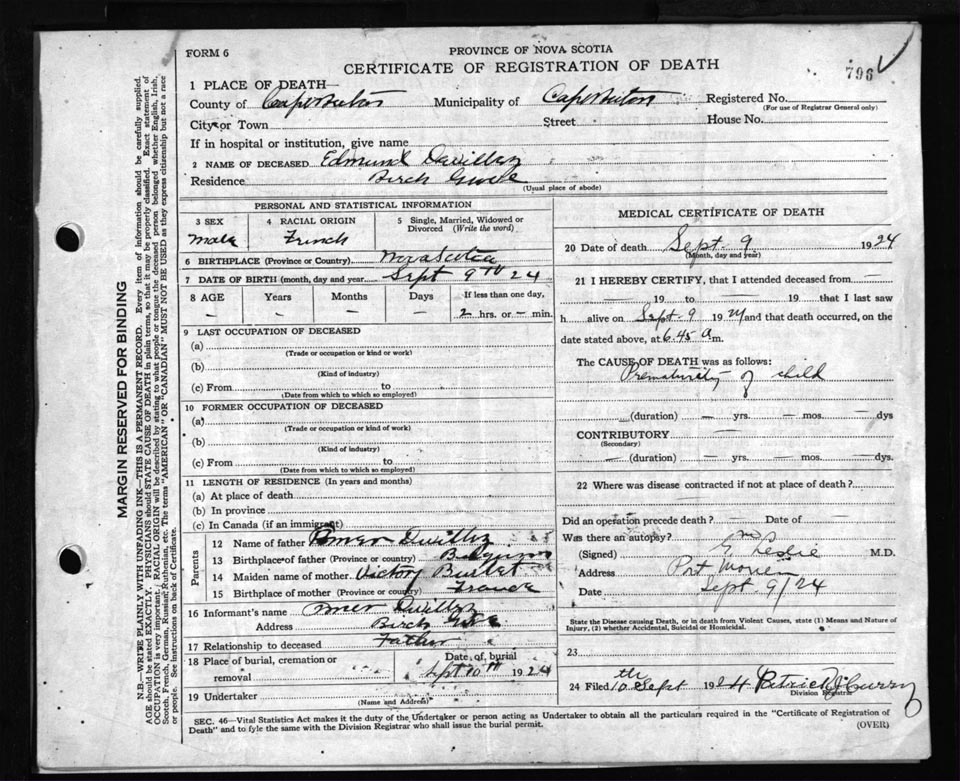 FORM 6
PROVINCE OF NOVA SCOTIA
CERTIFICATE OF REGISTRATION OF DEATH
796
MARGIN RESERVED FOR BINDING
N.B.—WRITE PLAINLY WITH UNFADING INK—THIS IS A PERMANENT RECORD. Every item of information should be carefully supplied.
AGE should be stated EXACTLY. PHYSICIANS should STATE CAUSE OF DEATH in plain terms, so that it may be properly classified. Exact statement of
OCCUPATION is very important. RACIAL ORIGIN will be described by stating to what people or tongue the deceased person belonged, whether English, Irish,
Scotch, French, German, Russian, Ruthenian, etc. The terms "AMERICAN" OR "CANADIAN" MUST NOT BE USED as they express citizenship but not a race
or people. See instructions on back of Certificate.
1 PLACE OF DEATH—
County of Cape Breton Municipality of Cape Breton Registered No.
(For use of Registrar General only)
City or Town Street House No.
If in hospital or institution, give name
2 NAME OF DECEASED Edmund
Residence Birch Grove
(Usual place of abode)
PERSONAL AND STATISTICAL INFORMATION
3 SEX 4 RACIAL ORIGIN 5 Single, Married, Widowed or
Divorced (Write the word)
Male French
6 BIRTHPLACE (Province or Country) Nova Scotia
7 DATE OF BIRTH (month, day and year) Sept 9th 24
8 AGE Years Months Days If less than one day,
— — — 2 hrs. or — min.
9 LAST OCCUPATION OF DECEASED
(a)
(Trade or occupation or kind or work)
(b)
(Kind of industry)
(c) From to
(Date from which to which so employed)
10 FORMER OCCUPATION OF DECEASED
(a)
(Trade or occupation or kind of work)
(b)
(Kind of industry)
(c) From to
(Date from which to which so employed)
11 LENGTH OF RESIDENCE (In years and months)
(a) At place of death
(b) In province
(c) In Canada (if an immigrant)
Parents
12 Name of father
13 Birthplace of father (Province or country) Belgium
14 Maiden name of mother
15 Birthplace of mother (Province or country) France
16 Informant's name
Address Birch Grove
17 Relationship to deceased Father
18 Place of burial, cremation or
removal
Date of burial
Sept 10th 1924
19 Undertaker
(Name and Address)
MEDICAL CERTIFICATE OF DEATH
20 Date of death Sept. 9 1924
(Month, day and year)
21 I HEREBY CERTIFY, that I attended deceased from —
—, 19 to — 19 that I last saw
h alive on Sept. 9 1924 and that death occurred, on the
date stated above, at 6.45 a m.
The CAUSE OF DEATH was as follows:
Prematurity of child
(duration) — yrs. — mos. — dys
CONTRIBUTORY —
(Secondary)
— (duration) — yrs. — mos. — dys.
22 Where was disease contracted if not at place of death?
—
Did an operation precede death? — Date of —
Was there an autopsy? no
(Signed) Leslie M.D.
Address Port Morien
Date Sept. 9/24
State the Disease causing Death, or in death from Violent Causes, state (1) Means and Nature of
Injury, (2) whether Accidental, Suicidal or Homicidal.
23
24 Filed 10th Sept 1924 Patrick J Curry
Division Registrar
SEC. 46—Vital Statistics Act makes it the duty of the Undertaker or person acting as Undertaker to obtain all the particulars required in the "Certificate of Registration of
Death" and to fyle the same with the Division Registrar who shall issue the burial permit.
(OVER)